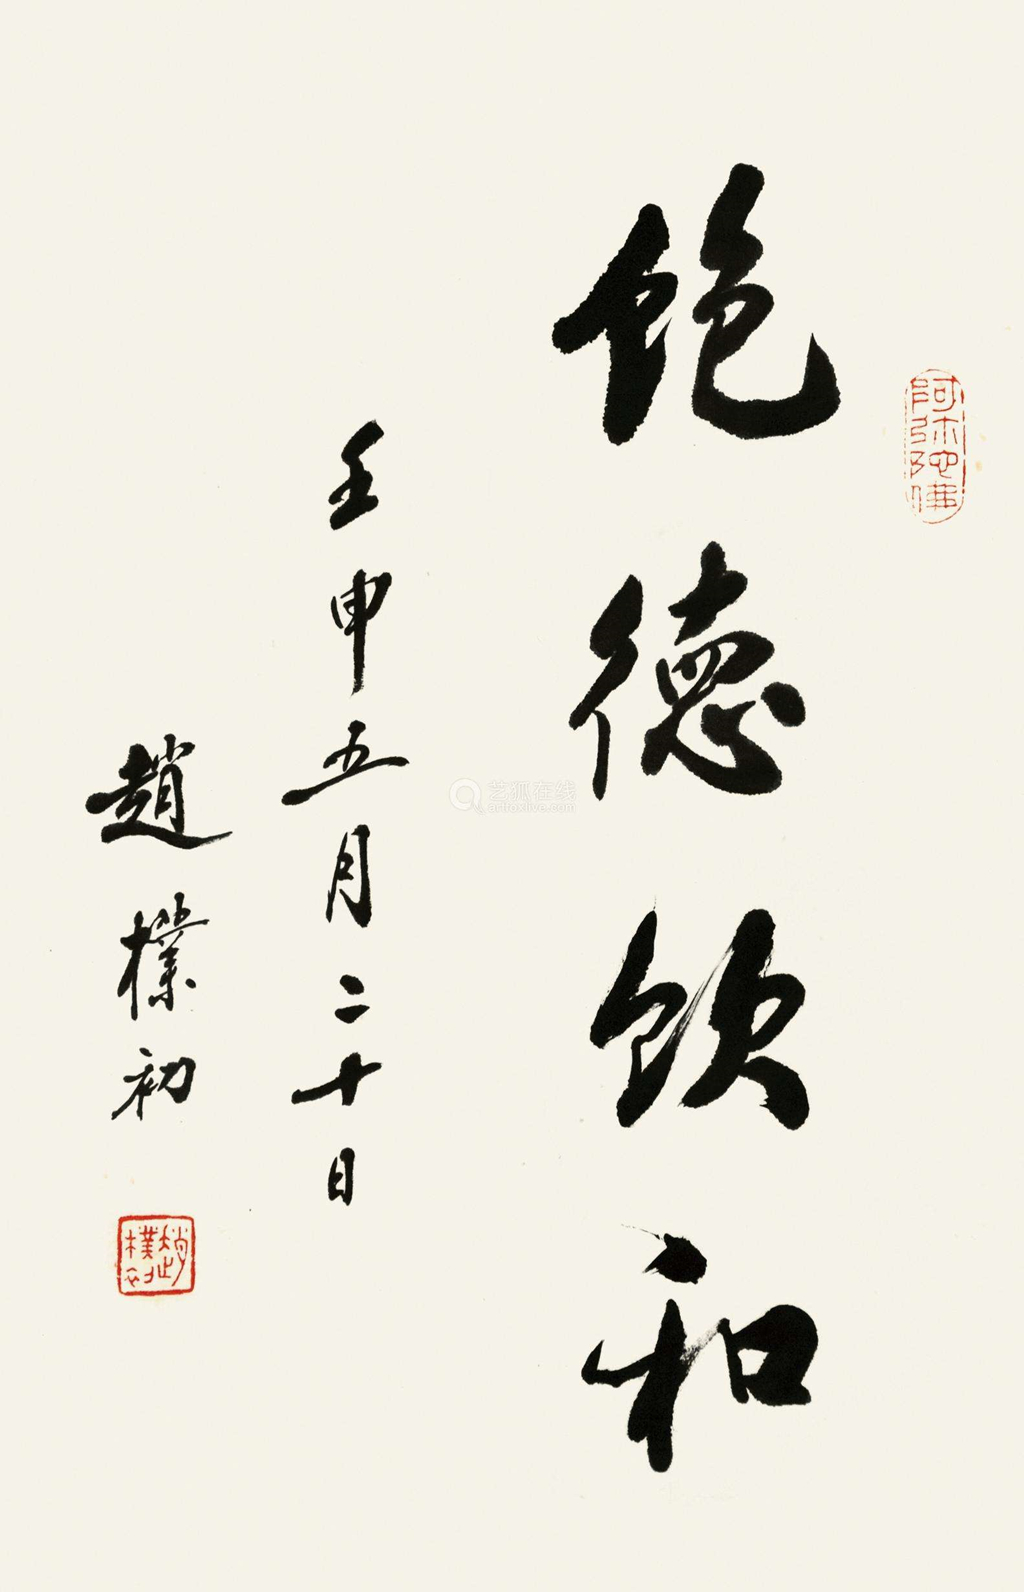 飽德飲和
壬申五月二十日
趙樸初
阿弥陀佛
趙樸初
艺狐在线
artfoxlive.com